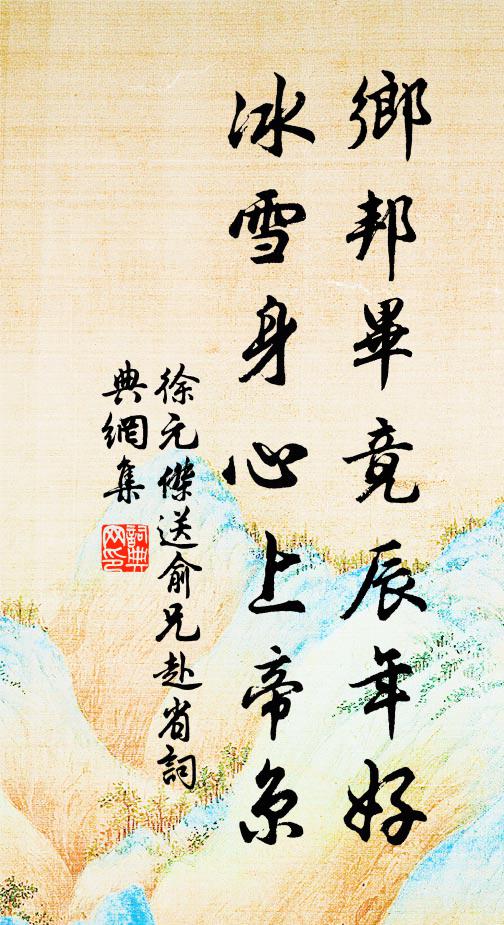 鄉邦畢竟辰年好
冰雪身心上帝京
徐元傑送俞兄赴省詞
典網集
詞典
网印